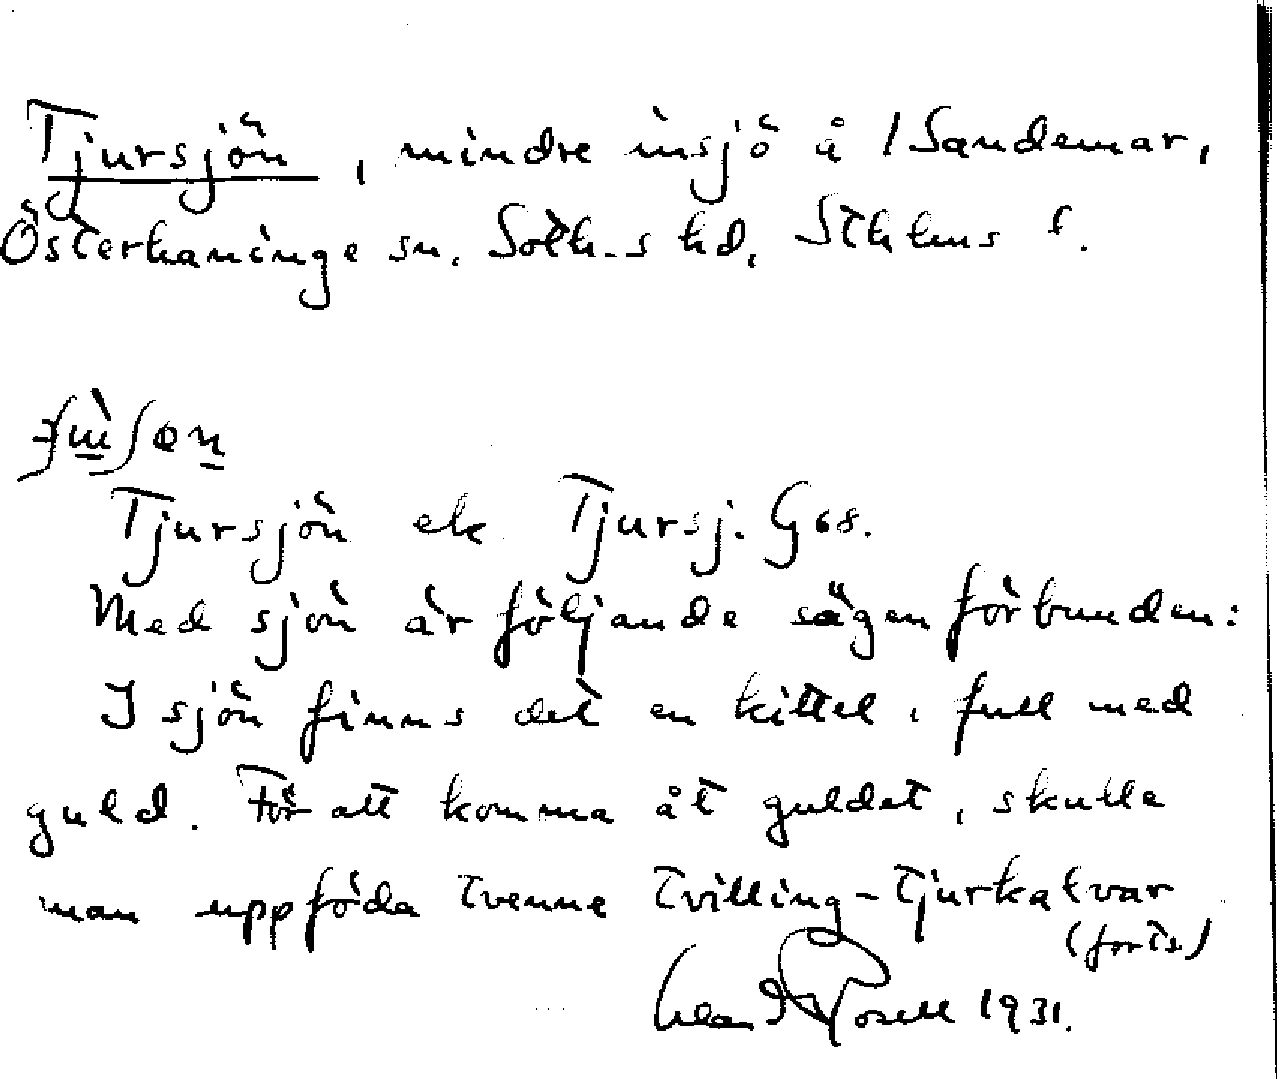 Tjursjön, mindre insjö å /Sandemar,
Österhaninge sn. Soth-s hd, Sthlms l.
Tjursjön ek Tjursj. G68.
Med sjön är följande sägen förbunden:
I sjön finns det en kittel, full med
guld. För att komma åt guldet, skulle
man uppföda tvenne tvilling-tjurkalvar
(forts)
1931.